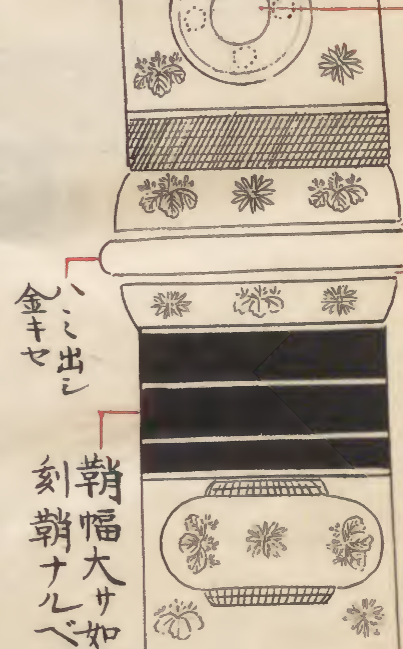 ハミ出シ
金キセ
鞘幅大サ如
刻鞘ナルベ